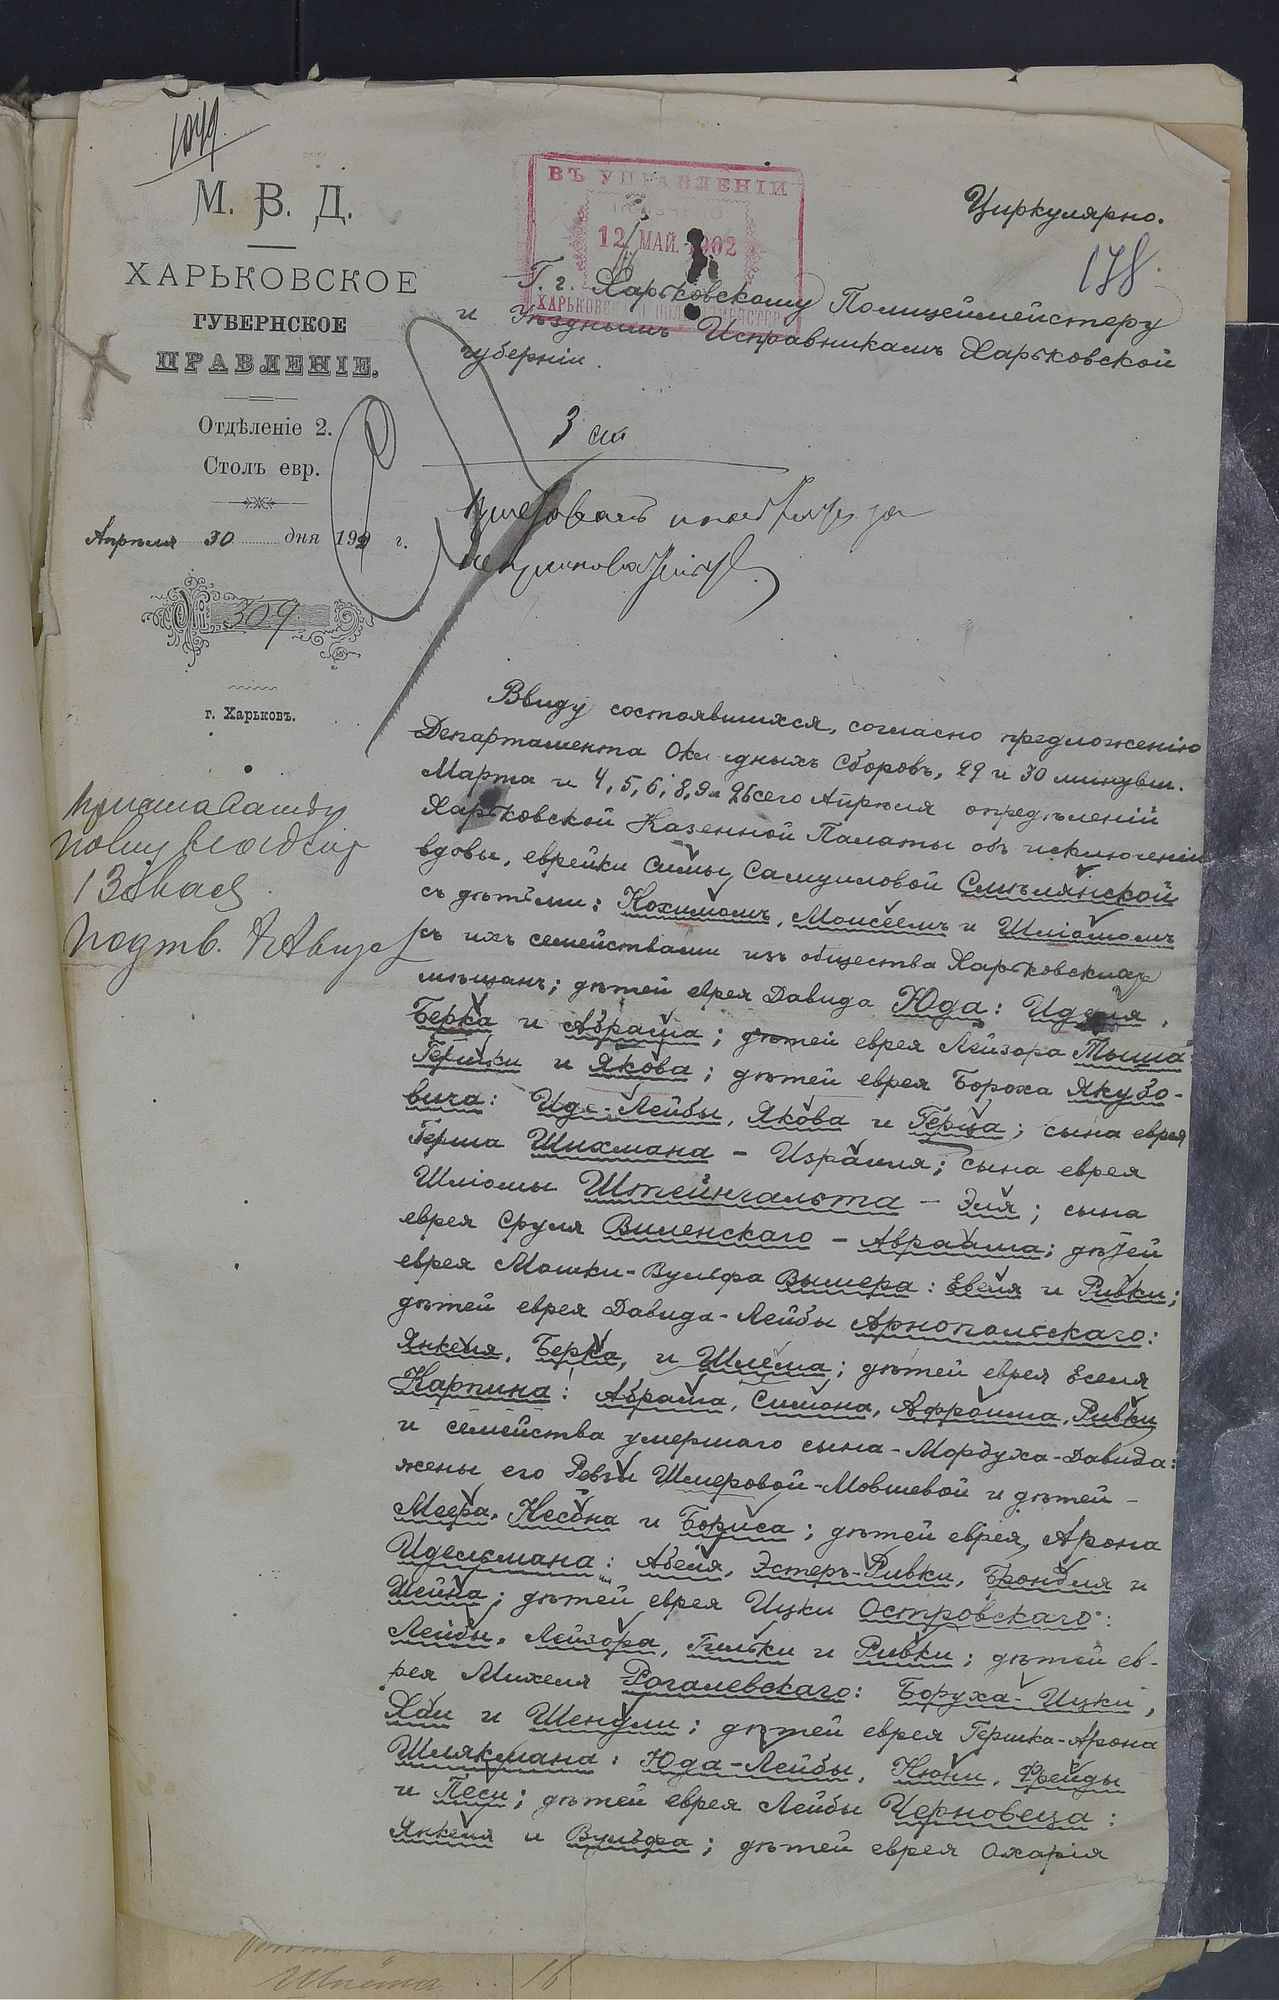 М. В. Д.
ХАРЬКОВСКОЕ
ГУБЕРНСКОЕ
ПРАВЛЕНІЕ.
Отдѣленіе 2.
Столъ евр.
Апрѣля 30 дня 190 г.
№ 309
г. Харьковъ.
ВЪ УПРАВЛЕНІИ
12 МАЙ. 1902
Циркулярно.
178
Г. г. Харьковскому Полицеймейстеру
и Уѣзднымъ Исправникамъ Харьковской
губерніи.
3 ст
Ввиду состоявшихся, согласно предложенію
Департамента Окладныхъ Сборовъ, 29 и 30 минувш.
Марта и 4, 5, 6, 8, 9 и 26 сего Апрѣля опредѣленій
Харьковской Казенной Палаты объ исключеніи
вдовы, еврейки Симы Самуиловой Смѣлянской
съ дѣтьми: Нохимомъ, Моисеемъ и Шліомомъ
съ ихъ семействами изъ общества Харьковскихъ
мѣщанъ; дѣтей еврея Давида Юда: Иделя,
Берка и Абрама; дѣтей еврея Лейзора Тыша:
Гершки и Якова; дѣтей еврея Бороха Якубо-
вича: Иде-Лейбы, Якова и Герца; сына еврея
Герша Шихмана - Израиля; сына еврея
Шліомы Штейнгальта - Эля; сына
еврея Сруля Виленскаго - Авраама; дѣтей
еврея Мошки-Вульфа Вымера: Евеля и Ривки;
дѣтей еврея Давида-Лейбы Арнопольскаго:
Янкеля, Берка, и Шлема; дѣтей еврея Еселя
Карпина: Абрама, Симона, Афроима, Ривки
и семейства умершаго сына-Мордуха-Давида:
жены его Ревзы Шмеровой-Мовшевой и дѣтей -
Меера, Несона и Бориса; дѣтей еврея, Арона
Идельмана: Абеля, Эстеръ-Ривки, Брондля и
Шейна; дѣтей еврея Ицки Островскаго:
Лейбы, Лейзора, Гитьки и Ривки; дѣтей ев-
рея Михеля Рогалевскаго: Боруха-Ицки,
Хаи и Шендли; дѣтей еврея Гершка-Арона
Шлякмана: Юда-Лейбы, Нюни, Фрейды
и Песи; дѣтей еврея Лейбы Черновеца:
Янкеля и Вульфа; дѣтей еврея Охарія